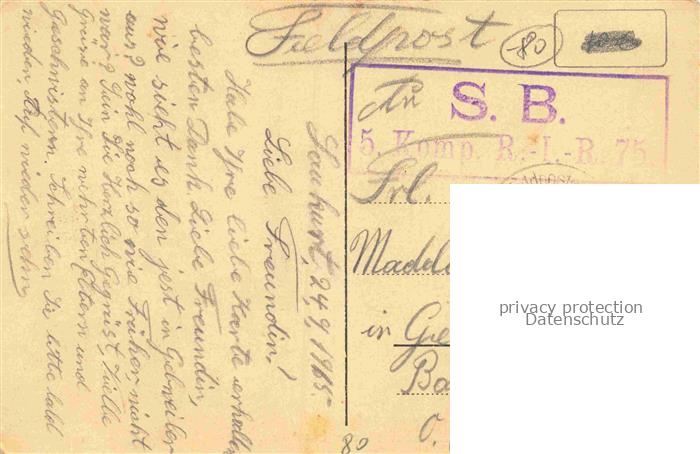 Feldpost
80
An
S. B.
5. Komp. R.-I.-R. 75.
Frl.
Madele
in Ge
Ba
O.
privacy protection
Datenschutz
80
24 9 1915.
Liebe Freundin!
Habe Ihre liebe Karte erhalten
besten Dank Liebe Freundin,
wie sieht es den jest in Gebweiler
aus? wohl noch so wie Früher nicht
war? Sein Sie Herzlich Gegrüst, Vielle
Grüse an Ihre wehrten Eltern und
Geschwistern. Schreiben Sie bitte bald
wieder Auf wieder sehn